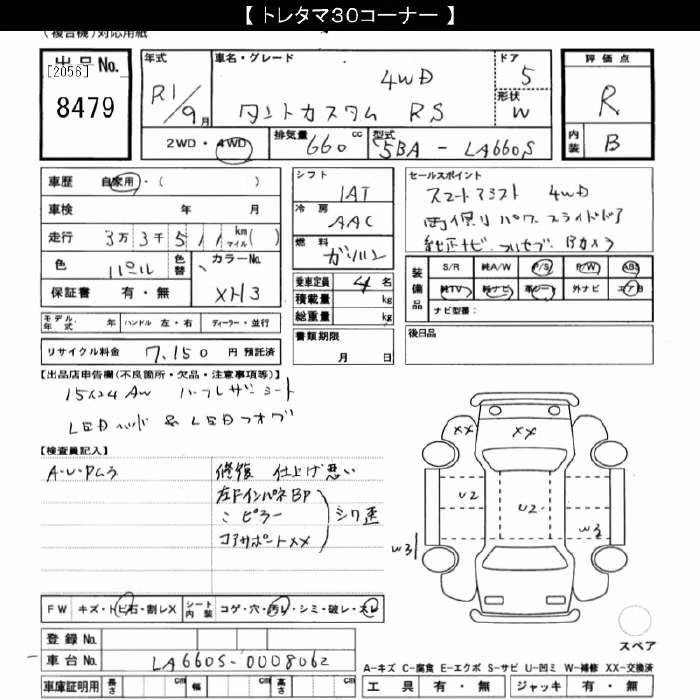 【 トレタマ30コーナー 】
(複合機)対応用紙
出品No. [2056] 8479
年式 R1/9月
車名・グレード 4WD
タントカスタム RS
ドア 5
形状 W
評価点 R
内装 B
2WD・4WD 排気量 660 cc 型式 5BA - LA660S
車歴 自家用・( )
車検 年 月
走行 3万3千511 km マイル( )
色 パール 色替 カラーNo. XH3
保証書 有・無
シフト IAT
冷房 AAC
燃料 ガソリン
乗車定員 4 名
積載量 kg
総重量 kg
書類期限 月 日
セールスポイント
スマートアシスト 4WD
両側リパワースライドドア
純正ナビ フルセグ Bカメラ
装備品 S/R 純A/W P/S P/W ABS
純TV 純ナビ 革シート 外ナビ エアB
ナビ型番:
後日品
モデル年式 年 ハンドル 左・右 ディーラー・並行
リサイクル料金 7,150 円 預託済
【出品店申告欄(不良箇所・欠品・注意事項等)】
15インチAW ハーフレザーシート
LEDヘッド & LEDフォグ
【検査員記入】
A・U・Pムラ
修復 仕上げ悪い
左Fインパネ BP
〃 ピラー シワ
コアサポートXX
XX XX
U2 U2 W2
W3
FW キズ・トビ石・割レX シート内装 コゲ・穴・汚レ・シミ・破レ・スレ
登録No.
車台No. LA660S-0008062
車庫証明用 長さ cm 幅 cm 高さ cm
スペア
A-キズ C-腐食 E-エクボ S-サビ U-凹ミ W-補修 XX-交換済
工具 有・無 ジャッキ 有・無